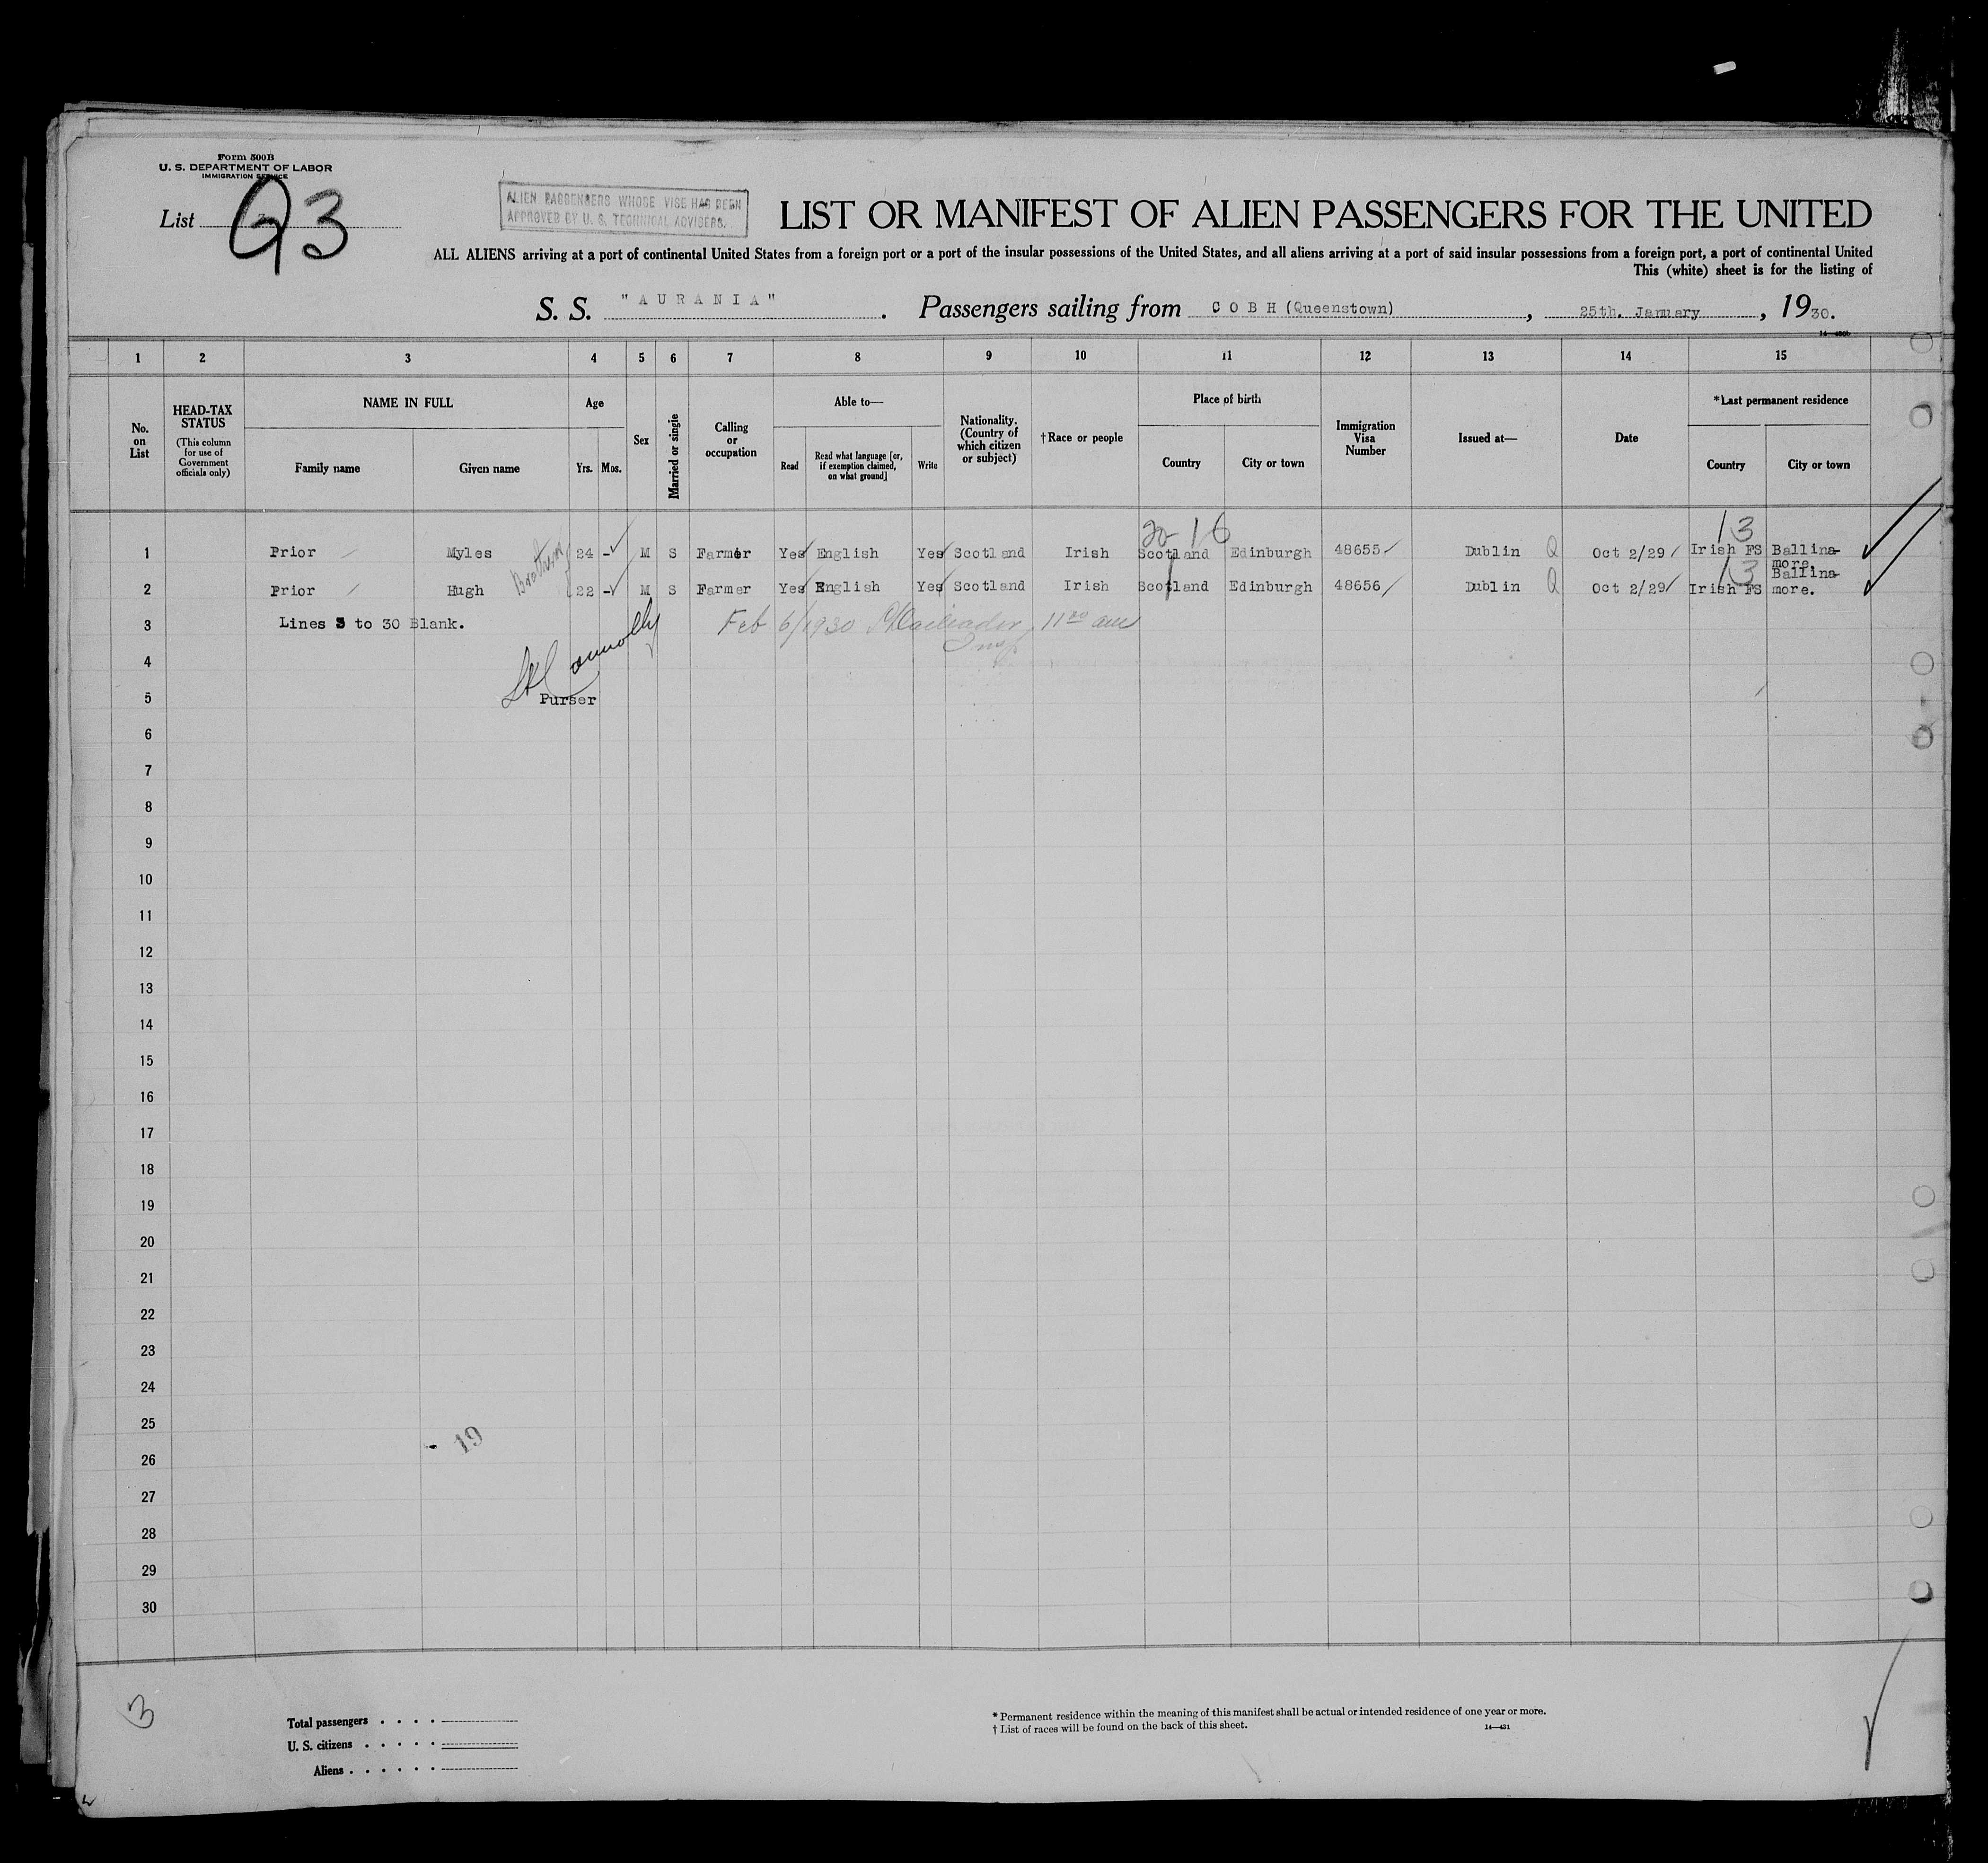 Form 500B
U. S. DEPARTMENT OF LABOR
IMMIGRATION SERVICE
List 3
ALIEN PASSENGERS WHOSE VISE HAS BEEN
APPROVED BY U. S. TECHNICAL ADVISERS.
LIST OR MANIFEST OF ALIEN PASSENGERS FOR THE UNITED
ALL ALIENS arriving at a port of continental United States from a foreign port or a port of the insular possessions of the United States, and all aliens arriving at a port of said insular possessions from a foreign port, a port of continental United
This (white) sheet is for the listing of
S. S. "AURANIA". Passengers sailing from COBH (Queenstown), 25th. January, 1930.
1 2 3 4 5 6 7 8 9 10 11 12 13 14 15
No. on List
HEAD-TAX STATUS (This column for use of Government officials only)
NAME IN FULL
Family name
Given name
Age
Yrs. Mos.
Sex
Married or single
Calling or occupation
Able to—
Read
Read what language [or, if exemption claimed, on what ground]
Write
Nationality. (Country of which citizen or subject)
†Race or people
Place of birth
Country
City or town
Immigration Visa Number
Issued at—
Date
*Last permanent residence
Country
City or town
20-16 13
1 Prior Myles 24 - M S Farmer Yes English Yes Scotland Irish Scotland Edinburgh 48655 Dublin Q Oct 2/29 Irish FS Ballina-more.
Brothers
13
2 Prior Hugh 22 - M S Farmer Yes English Yes Scotland Irish Scotland Edinburgh 48656 Dublin Q Oct 2/29 Irish FS Ballina-more.
3 Lines 3 to 30 Blank. Feb 6/1930 11 00 am
Insp
4 Connolly
5 Purser
6
7
8
9
10
11
12
13
14
15
16
17
18
19
20
21
22
23
24
25
19
26
27
28
29
30
3
Total passengers
U. S. citizens
Aliens
* Permanent residence within the meaning of this manifest shall be actual or intended residence of one year or more.
† List of races will be found on the back of this sheet.
14—431